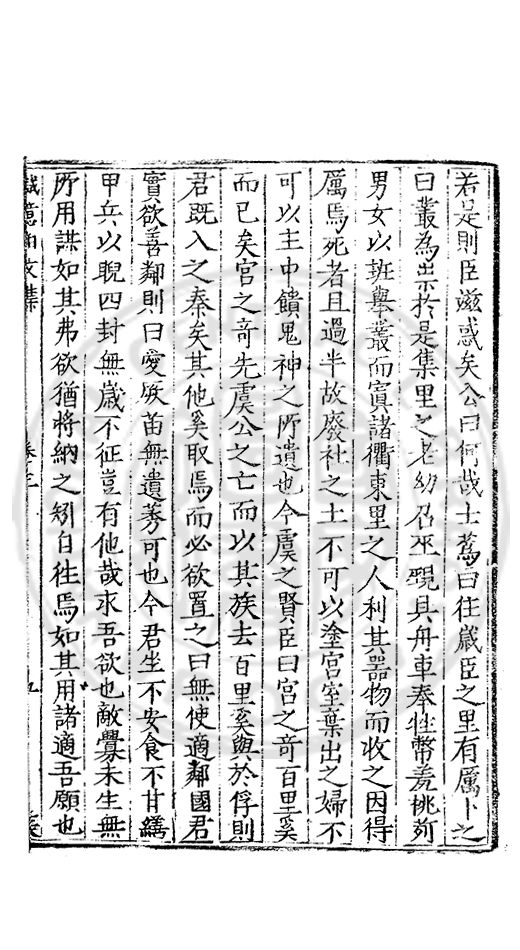 若是則臣滋惑矣公曰何哉士蒍曰往歲臣之里有厲卜之
曰叢為祟於是集里之老幼召巫覡具舟車奉牲幣羞桃茢
男女以班舉叢而寘諸衢東里之人利其器物而收之因得
厲焉死者且過半故廢社之土不可以塗宮室葉出之婦不
可以主中饋鬼神之所遺也今虞之賢臣曰宮之奇百里奚
而已矣宮之奇先虞公之亡而以其族去百里奚與於俘則
君既入之秦矣其他奚取焉而必欲置之曰無使適鄰國君
實欲善鄰則曰愛厥苗無遺莠可也今君坐不安食不甘繕
甲兵以睨四封無歲不征豈有他哉求吾欲也敵釁未生無
所用謀如其弗欲猶將納之矧自往焉如其用諸適吾願也
誠意伯文集
卷三
九